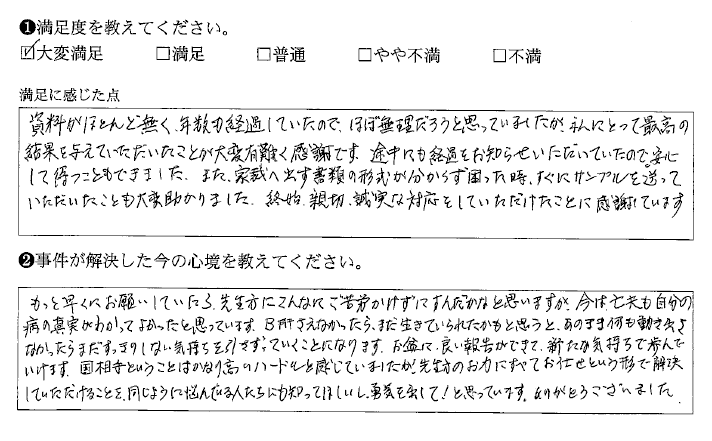 ❶満足度を教えてください。
☑大変満足 □満足 □普通 □やや不満 □不満
満足に感じた点
資料がほとんど無く、年数も経過していたので、ほぼ無理だろうと思っていましたが、私にとって最高の
結果を与えていただいたことが大変有難く感謝です。途中にも経過をお知らせいただいていたので、安心
して待つこともできました。また、家裁へ出す書類の形式が分からず困った時、すぐにサンプルを送って
いただいたことも大変助かりました。終始、親切、誠実な対応をしていただけたことに感謝しています
❷事件が解決した今の心境を教えてください。
もっと早くにお願いしていたら、先生方にこんなにご苦労かけずにすんだかなと思いますが、今は亡夫も自分の
病の真実がわかってよかったと思っています。B肝さえなかったら、まだ生きていられたかもと思うと、あのまま何も動き出さ
なかったらまだすっきりしない気持ちを引きずっていくことになります。お盆に、良い報告ができて、新たな気持ちで歩んで
いけます。国相手ということはかなり高いハードルと感じていましたが、先生方のお力にすべてお任せという形で解決
していただけることを、同じように悩んでいる人たちにも知ってほしいし、勇気を出して!と思っています。ありがとうございました